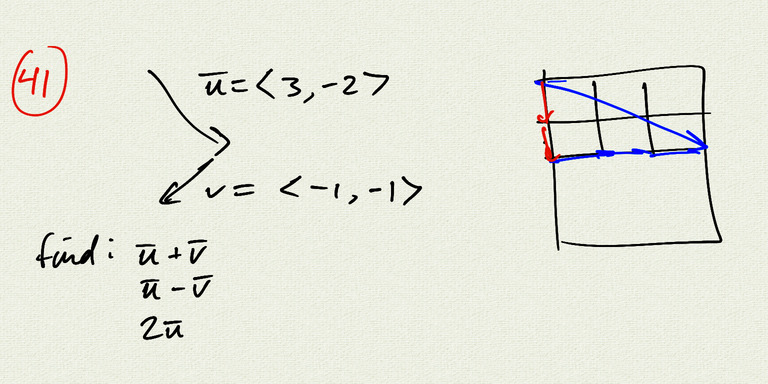 41
u̅ = <3, -2>
v = <-1, -1>
find: u̅ + v̅
u̅ - v̅
2u̅